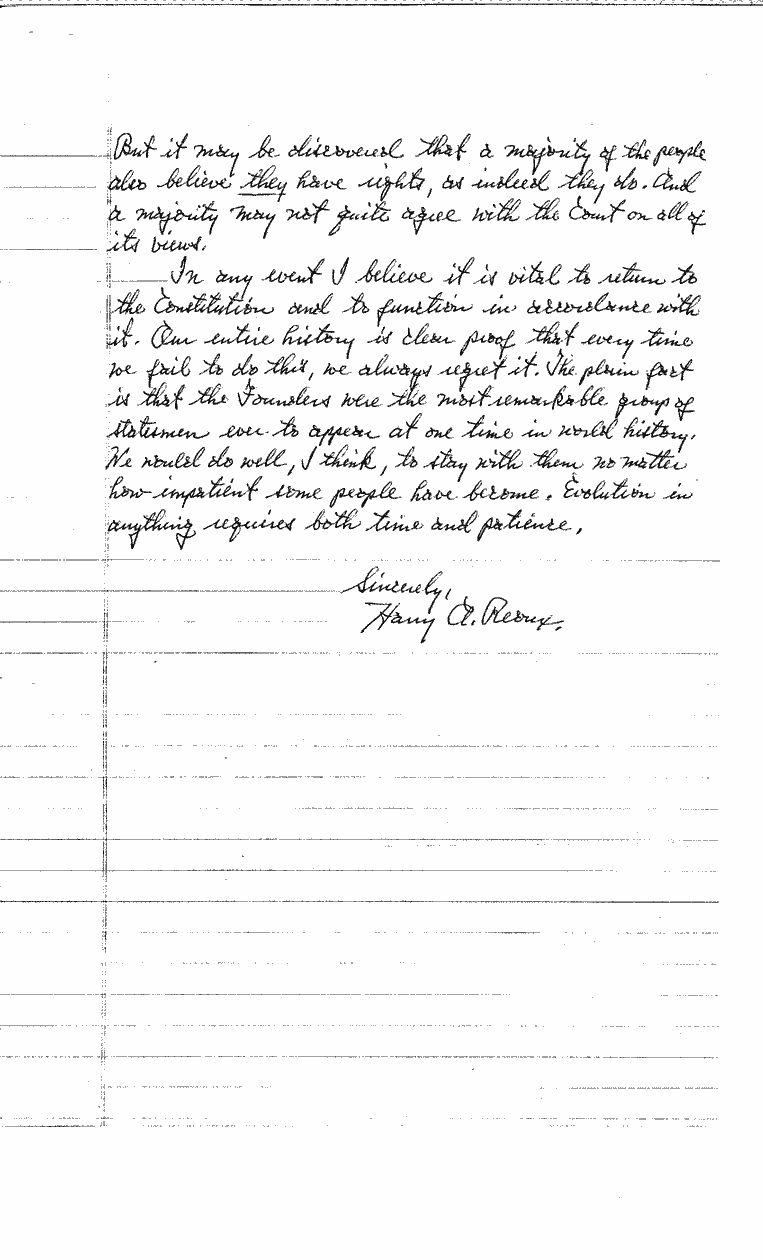 But it may be discovered that a majority of the people
also believe they have rights, as indeed they do. And
a majority may not quite agree with the Court on all of
its views.
In any event I believe it is vital to return to
the Constitution and to function in accordance with
it. Our entire history is clear proof that every time
we fail to do this, we always regret it. The plain fact
is that the Founders were the most remarkable group of
statesmen ever to appear at one time in world history.
We would do well, I think, to stay with them no matter
how impatient some people have become. Evolution in
anything requires both time and patience.
Sincerely,
Harry A.